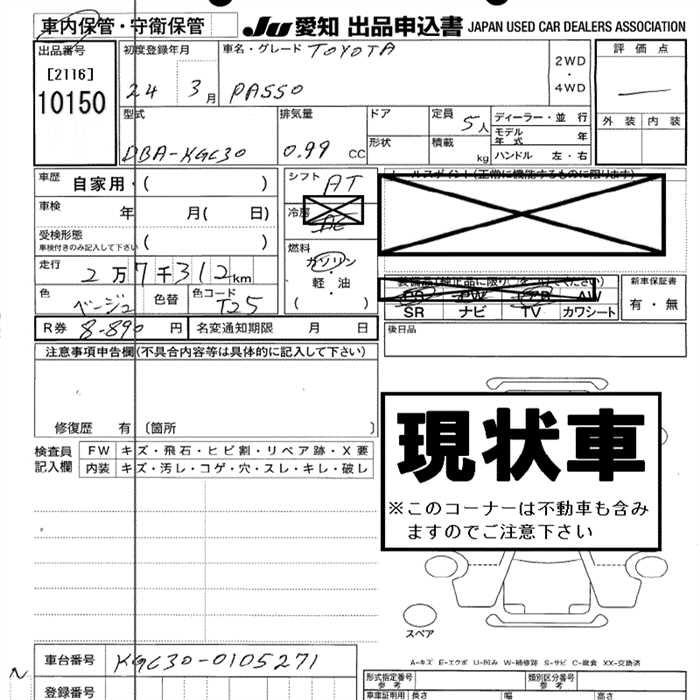 車内保管・守衛保管 JU 愛知 出品申込書 JAPAN USED CAR DEALERS ASSOCIATION
出品番号 初度登録年月 車名・グレード TOYOTA 2WD ・ 4WD 評価点
[2116] 24 3月 PASSO
10150
型式 排気量 ドア 定員 5人 ディーラー・並行 外装 内装
DBA-KGC30 0.99 CC 形状 積載 kg モデル年式 年
ハンドル 左・右
車歴 自家用・( ) シフト AT セールスポイント(正常に機能するものに限ります)
車検 年 月( 日) 冷房 AC
受検形態 ( ) 燃料
車検付きのみ記入して下さい ガソリン
走行 2万7千312km ・
軽・油
色 ベージュ 色替 色コード T25 ( )
装備品(純正品に限り○をつけてください) 新車保証書
PS PW AW 有・無
SR ナビ TV カワシート
R券 8-890 円 名変通知期限 月 日 後日品
注意事項申告欄(不具合内容等は具体的に記入して下さい)
修復歴 有 〔箇所 〕
検査員記入欄 FW キズ・飛石・ヒビ割・リペア跡・X要
内装 キズ・汚レ・コゲ・穴・スレ・キレ・破レ
現状車
※このコーナーは不動車も含み
ますのでご注意下さい
スペア
A-キズ E-エクボ U-凹み W-補修跡 S-サビ C-腐食 XX-交換済
車台番号 KGC30-0105271
形式指定番号 参考 類別区分番号 参考
登録番号 車庫証明用 長さ 幅 高さ